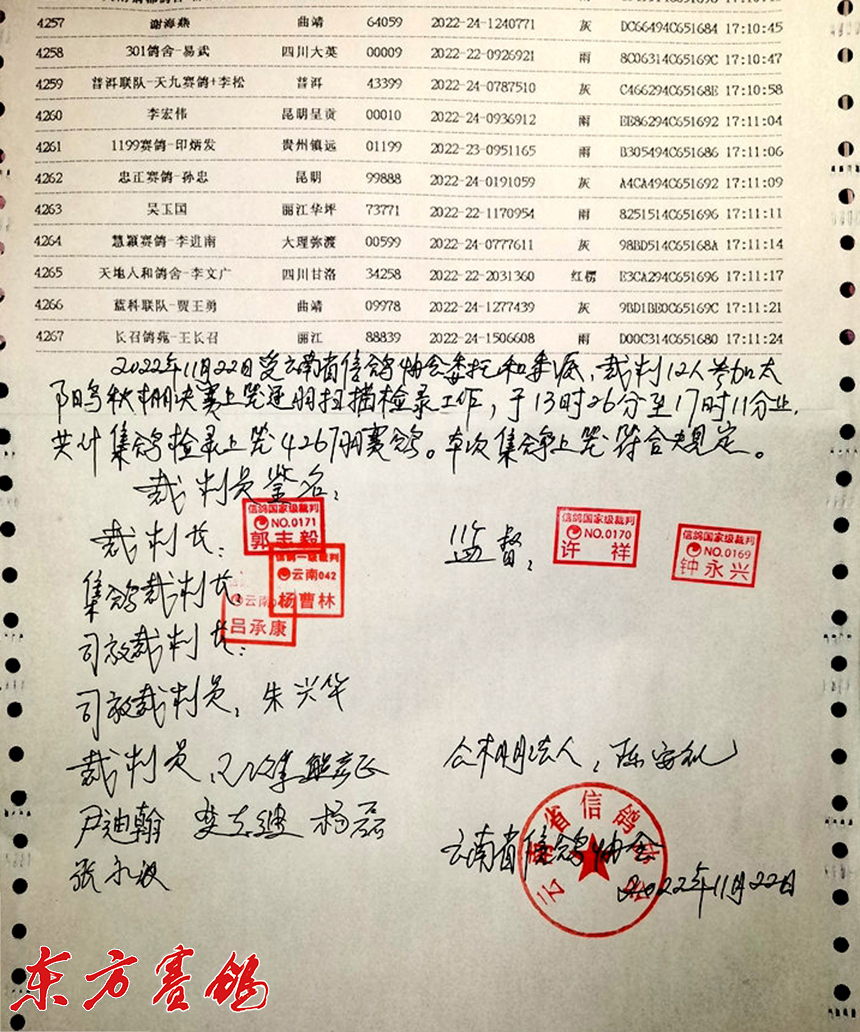 4257 谢海燕 曲靖 64059 2022-24-1240771 灰 DC66494C651684 17:10:45
4258 301鸽舍-易武 四川大英 00009 2022-22-0926921 雨 8C06314C65169C 17:10:47
4259 普洱联队-天九赛鸽+李松 普洱 43399 2022-24-0787510 灰 C466294C65168E 17:10:58
4260 李宏伟 昆明呈贡 00010 2022-24-0936912 雨 EE86294C651692 17:11:04
4261 1199赛鸽-印炳发 贵州镇远 01199 2022-23-0951165 雨 B305494C651686 17:11:06
4262 忠正赛鸽-孙忠 昆明 99888 2022-24-0191059 灰 A4CA494C651692 17:11:09
4263 吴玉国 丽江华坪 73771 2022-22-1170954 雨 8251514C651696 17:11:11
4264 慧颖赛鸽-李进南 大理弥渡 00599 2022-24-0777611 灰 98BD514C65168A 17:11:14
4265 天地人和鸽舍-李文广 四川甘洛 34258 2022-22-2031360 红楞 E3CA294C651696 17:11:17
4266 蓝科联队-贾王勇 曲靖 09978 2022-24-1277439 灰 9BD1BE0C65169C 17:11:21
4267 长召鸽苑-王长召 丽江 88839 2022-24-1506608 雨 D00C314C651680 17:11:24
2022年11月22日受云南省信鸽协会委托和委派，裁判12人参加太
阳鸟秋棚决赛上笼逐羽扫描检录工作，于13时26分至17时11分止，
共计集鸽检录上笼4267羽赛鸽。本次集鸽上笼符合规定。
裁判员签名：
裁判长： 信鸽国家级裁判 NO.0171 郭志毅
监督： 信鸽国家级裁判 NO.0170 许祥
信鸽国家级裁判 NO.0169 钟永兴
集鸽裁判长： 信鸽一级裁判 云南042 杨曹林
云南 吕承康
司放裁判长：
司放裁判员：朱兴华
裁判员：
公棚法人：陈安礼
尹迪翰 杨磊
云南省信鸽协会
2022年11月22日
东方赛鸽